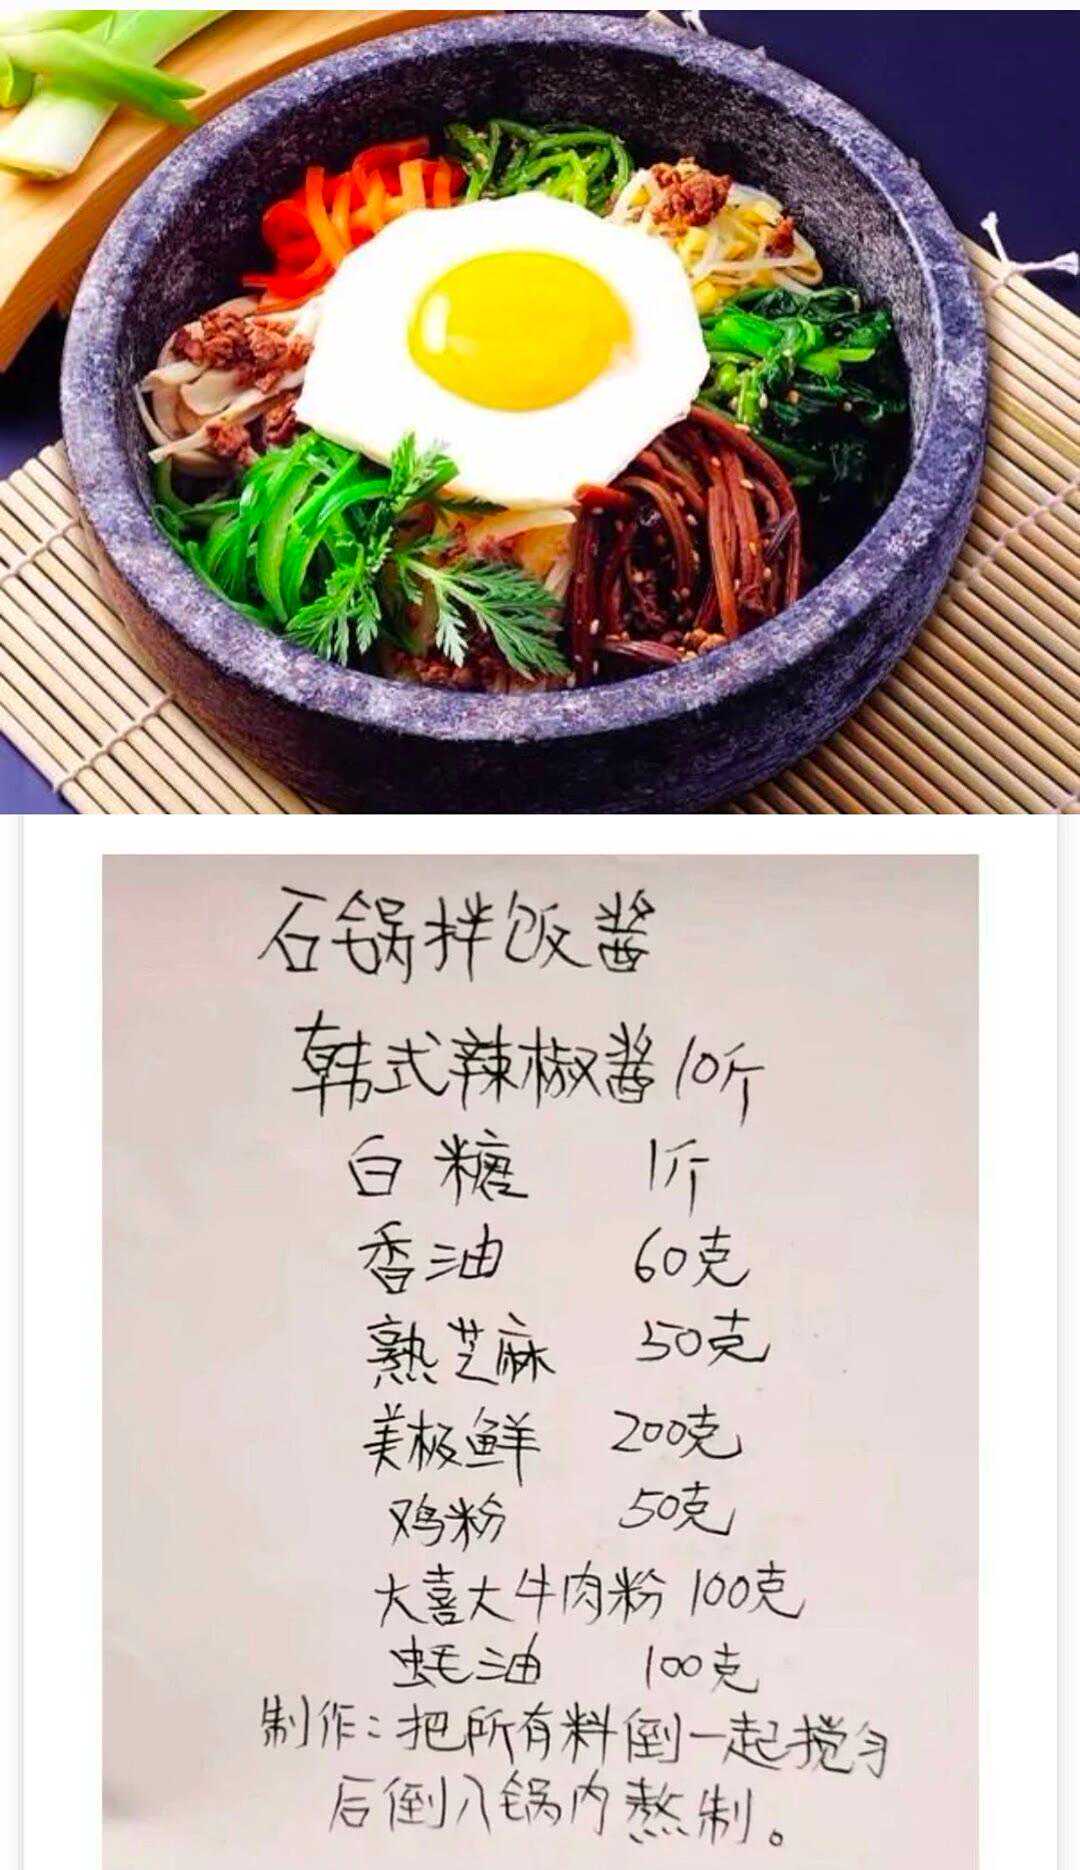 石锅拌饭酱
韩式辣椒酱10斤
白糖 1斤
香油 60克
熟芝麻 50克
美极鲜 200克
鸡粉 50克
大喜大牛肉粉 100克
蚝油 100克
制作:把所有料倒一起搅匀
后倒入锅内熬制。